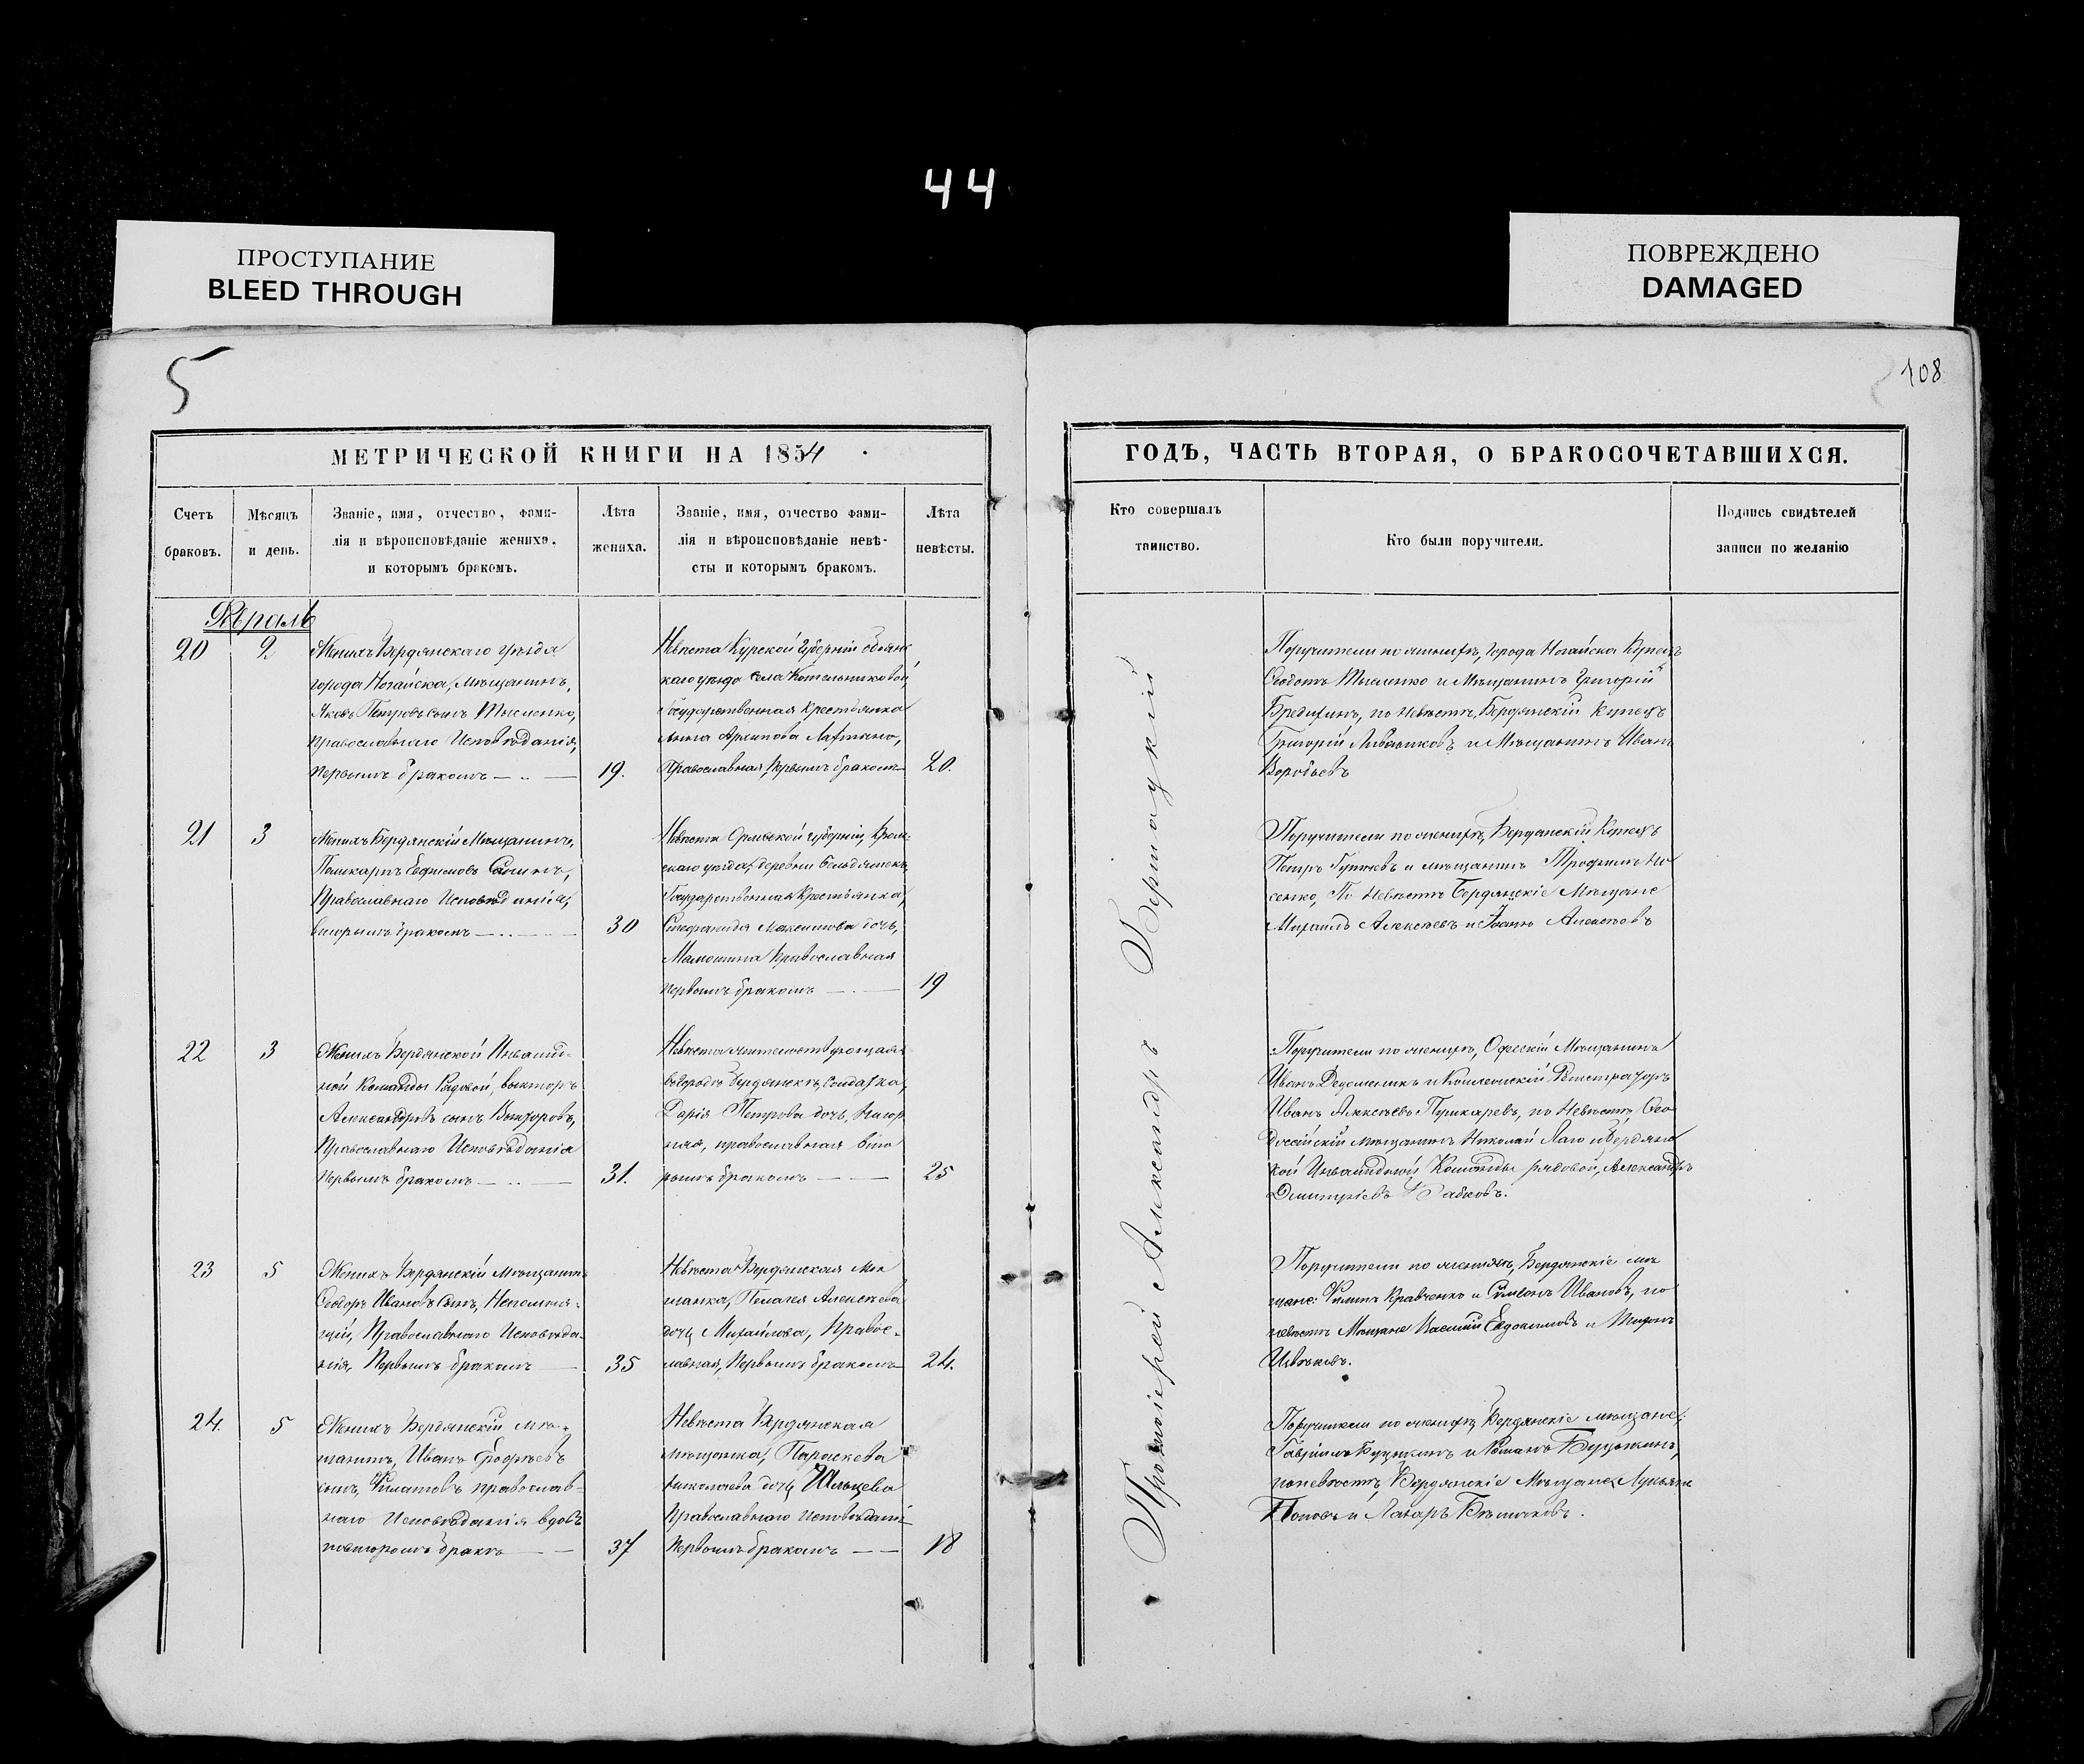 44
ПРОСТУПАНИЕ
BLEED THROUGH
ПОВРЕЖДЕНО
DAMAGED
5
108
МЕТРИЧЕСКОЙ КНИГИ НА 1854
Счетъ
браковъ.
Мѣсяцъ
и день.
Званіе, имя, отчество, фами-
лія и вѣроисповѣданіе жениха,
и которымъ бракомъ.
Лѣта
жениха.
Званіе, имя, отчество фами-
лія и вѣроисповѣданіе невѣ-
сты и которымъ бракомъ.
Лѣта
невѣсты.
Февраль
20
2
Женихъ Бердянскаго уѣзда
города Ногайска, Мѣщанинъ,
Яковъ Петровъ сынъ Тысленко,
православнаго Исповѣданія,
первымъ бракомъ
19.
Невѣста Курской Губерніи Обоянс
каго уѣзда Села Котельниковой,
Государственная Крестьянка
Анна Архипова
Православная, первымъ бракомъ
20.
21
3
Женихъ Бердянскій Мѣщанинъ,
Поликарпъ Евфимовъ
Православнаго Исповѣданія,
вторымъ бракомъ
30
Невѣста Орловской губерніи, Кром-
скаго уѣзда, деревни
Государственная Крестьянка,
Степанида Максимова дочь,
Мамошина Православная
первымъ бракомъ
19
22
3
Женихъ Бердянской Инвалид-
ной Команды Рядовой, Викторъ
Александровъ сынъ Викторовъ,
Православнаго Исповѣданія
первымъ бракомъ
31.
Невѣста жительствующая
въ городѣ Бердянскѣ, Солдатка,
Дарія Петрова дочь,
православная вто
рымъ бракомъ
25
23
5
Женихъ Бердянскій Мѣщанинъ
Ѳеодоръ Ивановъ Сынъ, Непомня-
щій, Православнаго Исповѣда-
нія, первымъ бракомъ
35
Невѣста Бердянская Мѣ
щанка, Пелагея Алексѣева
дочь Михайлова, Правос-
лавная, первымъ бракомъ
24.
24.
5
Женихъ Бердянскій мѣ-
щанинъ, Иванъ
сынъ, Филатовъ православ-
наго Исповѣданія вдовъ
повторомъ бракѣ
37
Невѣста Бердянская
мѣщанка, Параскева
Николаева дочь Ильцева
Православнаго Исповѣдані
первымъ бракомъ
18
ГОДЪ, ЧАСТЬ ВТОРАЯ, О БРАКОСОЧЕТАВШИХСЯ.
Кто совершалъ
таинство.
Кто были поручители.
Подпись свидѣтелей
записи по желанію
Протоіерей Александръ
Поручители по женихѣ, города Ногайска Купецъ
Ѳеодотъ Тысленко и Мѣщанинъ Григорій
Бредихинъ, по Невѣстѣ, Бердянскій Купецъ
Григорій и Мѣщанинъ Иванъ
Воробьевъ
Поручители по женихѣ, Бердянскій Купецъ
Петръ и мѣщанинъ Трофимъ Но
сенко, По Невѣстѣ Бердянскіе Мѣщане
Михаилъ Алексѣевъ и Іоаннъ Алексѣевъ
Поручители по женихѣ, Одесскій Мѣщанинъ
Иванъ и Коллежскій Регистраторъ
Иванъ Алексѣевъ Пушкаревъ, по Невѣстѣ Ѳео
досійскій мѣщанинъ Николай и Бердянс
кой Инвалидной Команды рядовой, Александръ
Дмитріевъ
Поручители по женихѣ, Бердянскіе мѣ
щане: Филипъ Кравченко и Симеонъ Ивановъ, по
невѣстѣ Мѣщане Василій Евдокимовъ и Тихонъ
Ивѣковъ.
Поручители по женихѣ Бердянскіе мѣщане:
Гавріилъ и Романъ
по невѣстѣ, Бердянскіе Мѣщане Лукьянъ
Поповъ и Лазарь